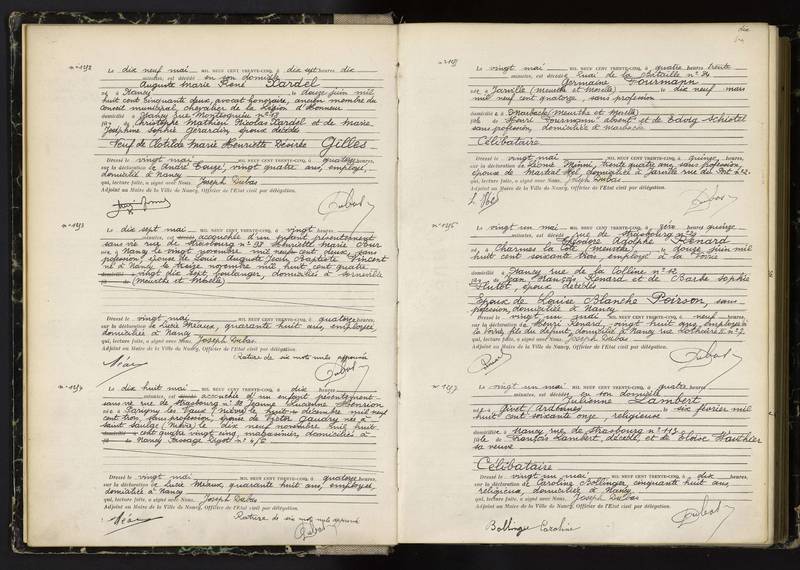 n° 1192
Le dix neuf mai MIL NEUF CENT TRENTE-CINQ, à dix sept heures dix
minutes, est décédé en son domicile
Auguste Marie René Kardel
né à Nancy le douze juin mil
huit cent cinquante deux, avocat honoraire, ancien membre du
Conseil municipal, chevalier de la Légion d'Honneur
domicilié à Nancy rue Montesquieu n°
fils de Christophe Mathieu Nicolas Kardel et de Marie
Joséphine Sophie Gérardin époux décédés
Veuf de Clotilde Marie Henriette Désirée Gilles
Dressé le vingt mai MIL NEUF CENT TRENTE-CINQ, à quatorze heures
sur la déclaration de André vingt quatre ans, employé,
domicilié à Nancy
qui, lecture faite, a signé avec Nous, Joseph Dubas
Adjoint au Maire de la Ville de Nancy, Officier de l'Etat civil par délégation.
Dubas
n° 1193
Le dix sept mai MIL NEUF CENT TRENTE-CINQ, à vingt heures
minutes, est accouchée d'un enfant présentement
sans vie rue de Strasbourg n° Henriette Marie
née à Nancy le vingt novembre mil neuf cent deux, sans
profession, épouse de Louis Auguste Jean Baptiste Vincent
né à Nancy le treize novembre mil huit cent quatre
vingt dix sept, boulanger, domiciliés à
(Meurthe et Moselle)
Dressé le vingt mai MIL NEUF CENT TRENTE-CINQ, à quatorze heures
sur la déclaration de Lucie Méaux, quarante huit ans, employée,
domiciliée à Nancy
qui, lecture faite, a signé avec Nous, Joseph Dubas
Adjoint au Maire de la Ville de Nancy, Officier de l'Etat civil par délégation.
Rature de six mots nuls approuvée
Dubas
n° 1194
Le dix huit mai MIL NEUF CENT TRENTE-CINQ, à dix heures
minutes, est accouchée d'un enfant présentement
sans vie rue de Strasbourg n° Jeanne Lucienne Henrion
née à Parigny les Vaux (Nièvre) le huit décembre mil neuf
cent trois, sans profession, épouse de Victor Gaudry né à
Saint Saulge (Nièvre) le dix neuf novembre mil huit
cent quatre vingt cinq, magasinier, domiciliés à
Nancy Passage Digot n° 4/6
Dressé le vingt mai MIL NEUF CENT TRENTE-CINQ, à quatorze heures
sur la déclaration de Lucie Méaux, quarante huit ans, employée,
domiciliée à Nancy
qui, lecture faite, a signé avec Nous, Joseph Dubas
Adjoint au Maire de la Ville de Nancy, Officier de l'Etat civil par délégation.
Rature de six mots nuls approuvée
Dubas
Le vingt mai MIL NEUF CENT TRENTE-CINQ, à quatre heures trente
minutes, est décédée Quai de la Bataille n°
Germaine Fourmann
née à Jarville (Meurthe et Moselle) le dix neuf mars
mil neuf cent quatorze, sans profession
domiciliée à Marbache (Meurthe et Moselle)
fille de Henri Fourmann absent et de Edvig Schistel
sans profession, domiciliée à Marbache
Célibataire
Dressé le vingt mai MIL NEUF CENT TRENTE-CINQ, à quinze heures
sur la déclaration de Léonie Minni, trente quatre ans, sans profession,
épouse de Martial domiciliée à Jarville rue du
qui, lecture faite, a signé avec Nous, Joseph Dubas
Adjoint au Maire de la Ville de Nancy, Officier de l'Etat civil par délégation.
Dubas
n° 1196
Le vingt un mai MIL NEUF CENT TRENTE-CINQ, à zéro heures quinze
minutes, est décédé rue de Strasbourg n°
Théodore Adolphe Renard
né à Charmes la Côte (Meurthe) le douze juin mil
huit cent soixante trois, employé à la Voirie
domicilié à Nancy rue de la Colline n° 12
fils de Jean François Renard et de Barbe Sophie
époux décédés
Epoux de Louise Blanche Poirson, sans
profession, domiciliée à Nancy
Dressé le vingt un mai MIL NEUF CENT TRENTE-CINQ, à neuf heures
sur la déclaration de Henri Renard, vingt huit ans, employé à
la Voirie, fils du défunt, domicilié à Nancy rue Lothaire II n° 7
qui, lecture faite, a signé avec Nous, Joseph Dubas
Adjoint au Maire de la Ville de Nancy, Officier de l'Etat civil par délégation.
Dubas
n° 1197
Le vingt un mai MIL NEUF CENT TRENTE-CINQ, à quatre heures
minutes, est décédée en son domicile
Julienne Lambert
née à Givet (Ardennes) le six février mil
huit cent soixante onze, religieuse
domiciliée à Nancy rue de Strasbourg n° 113
fille de François Lambert, décédé, et de Eloïse Hauthier
sa veuve
Célibataire
Dressé le vingt un mai MIL NEUF CENT TRENTE-CINQ, à dix heures
sur la déclaration de Caroline Bollinger, cinquante huit ans
religieuse, domiciliée à Nancy
qui, lecture faite, a signé avec Nous, Joseph Dubas
Adjoint au Maire de la Ville de Nancy, Officier de l'Etat civil par délégation.
Bollinger Caroline
Dubas